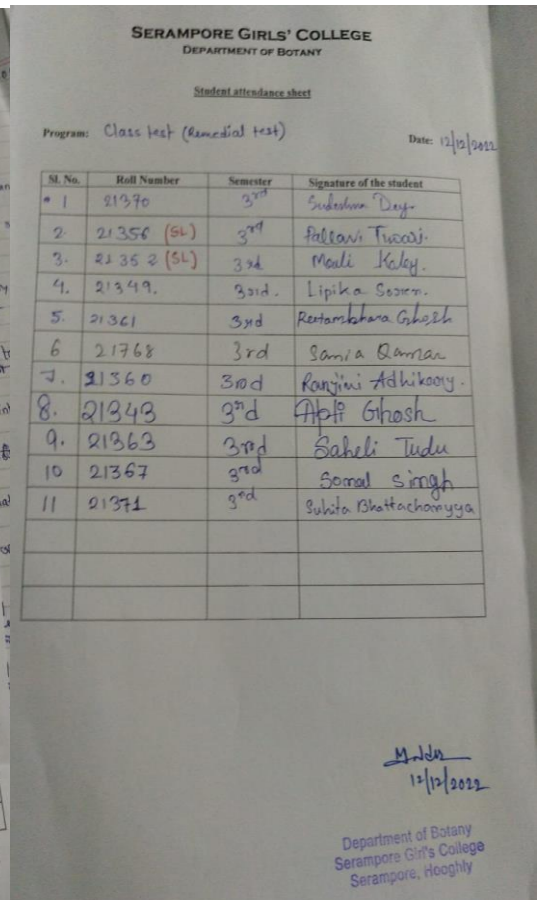 SERAMPORE GIRLS' COLLEGE
DEPARTMENT OF BOTANY
Student attendance sheet
Program: Class test (Remedial test)
Date: 12/12/2022
Sl. No. Roll Number Semester Signature of the student
1 21370 3rd Sudeshna Dey
2. 21356 (SL) 3rd Pallavi Tiwari.
3. 21352 (SL) 3rd Kaley.
4. 21349. 3rd. Lipika Soren.
5. 21361 3rd Reetambhara Ghosh
6 21768 3rd Sania Qamar
7. 21360 3rd Ranjini Adhikary.
8. 21343 3rd Ghosh
9. 21363 3rd Saheli Tudu
10 21367 3rd Somal Singh
11 21371 3rd Suhita Bhattacharyya
12/12/2022
Department of Botany
Serampore Girl's College
Serampore, Hooghly